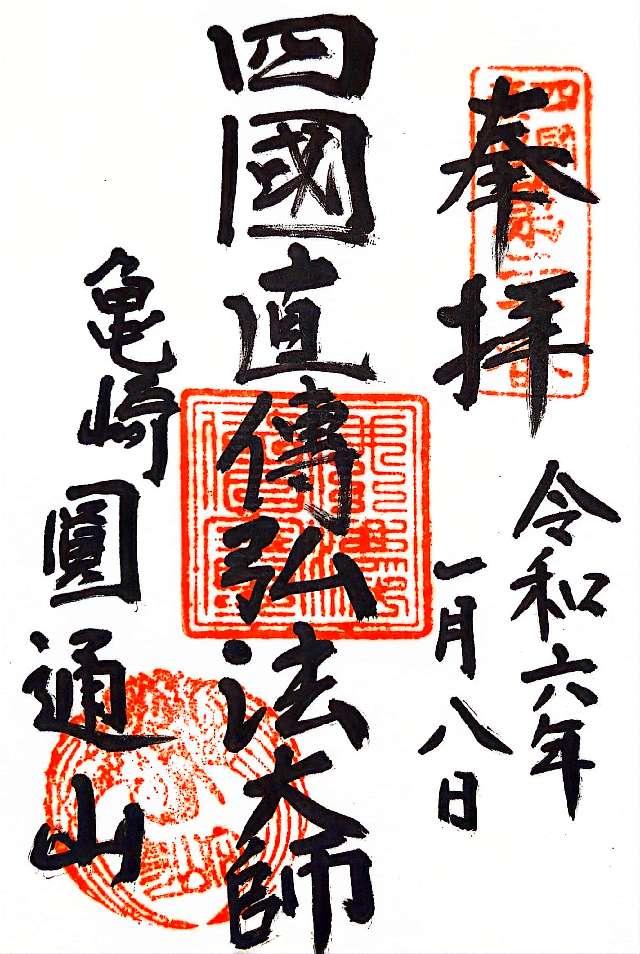 奉拝
令和六年
一月八日
四國直傳弘法大師
亀崎圓通山